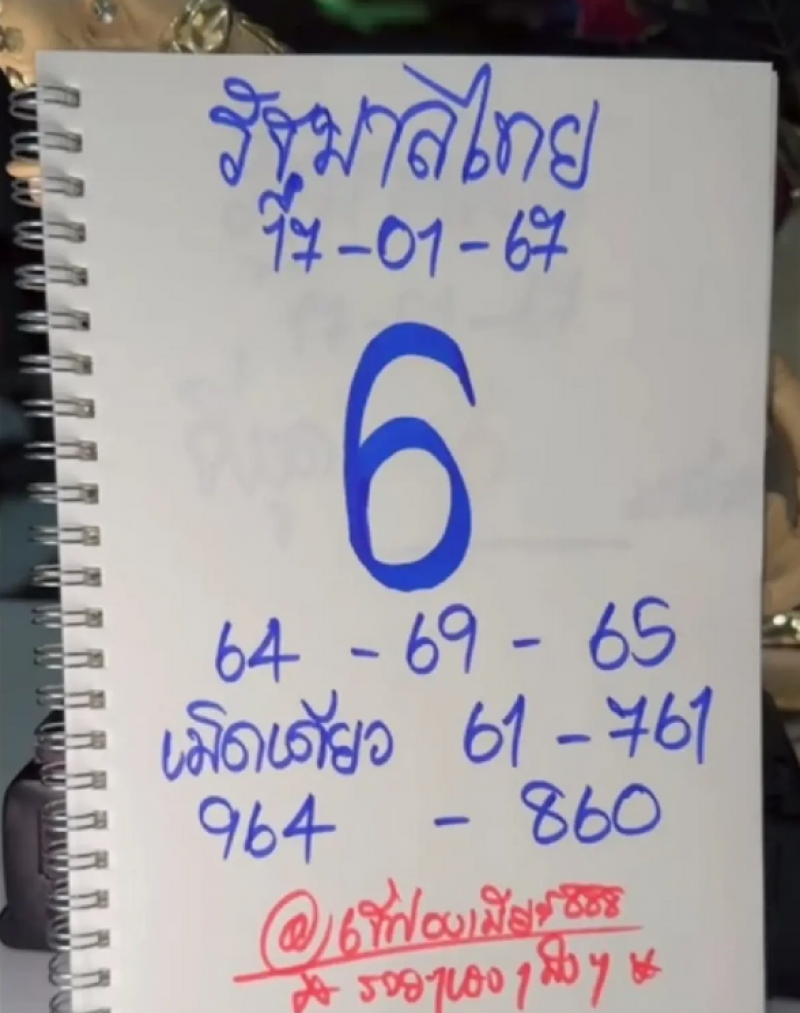 รัฐบาลไทย
17-01-67
6
64 - 69 - 65
เม็ดเดียว 61 - 761
964 - 860
@เจ๊ฟองเบียร์888